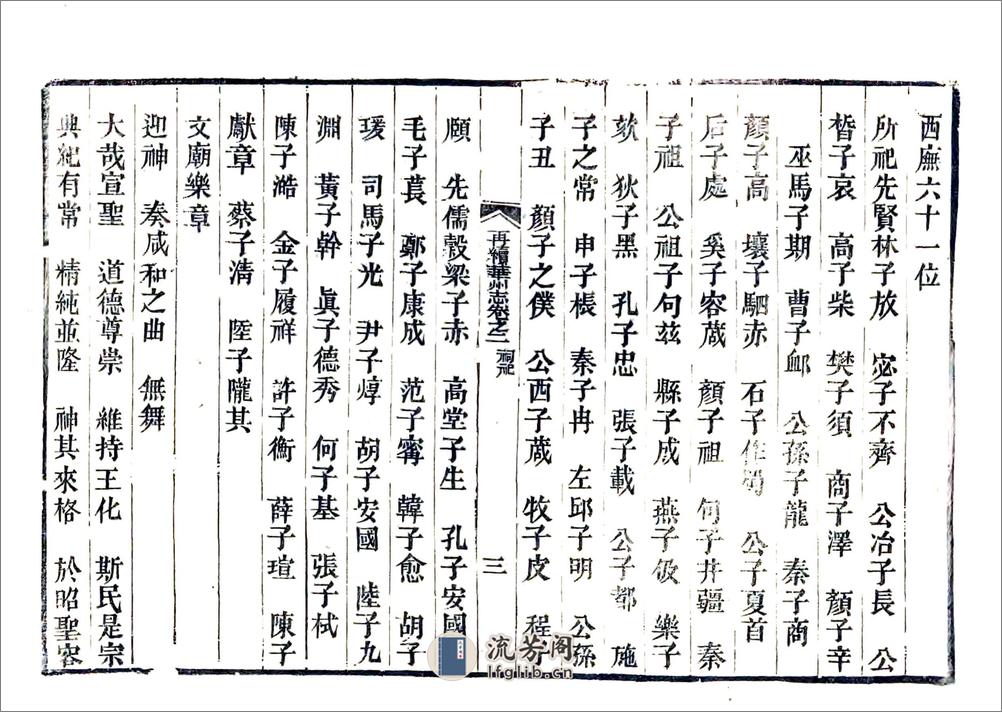 西廡六十一位
所祀先賢林子放　宓子不齊　公冶子長　公
晳子哀　高子柴　樊子須　商子澤　顏子辛
巫馬子期　曹子卹　公孫子龍　秦子商
顏子高　壤子駟赤　石子作蜀　公子夏首
后子處　奚子容蒧　顏子祖　句子井疆　秦
子祖　公祖子句兹　縣子成　燕子伋　樂子
欬　狄子黑　孔子忠　張子載　公子都　施
子之常　申子棖　秦子冉　左邱子明　公孫
子丑　顏子之僕　公西子蒧　牧子皮　程子
再續華州志卷之二　祠祀　三
頤　先儒穀梁子赤　高堂子生　孔子安國
毛子萇　鄭子康成　范子寗　韓子愈　胡子
瑗　司馬子光　尹子焞　胡子安國　陸子九
淵　黃子幹　眞子德秀　何子基　張子栻
陳子澔　金子履祥　許子衡　薛子瑄　陳子
獻章　蔡子清　陸子隴其
文廟樂章
迎神　奏咸和之曲　無舞
大哉宣聖　道德尊崇　維持王化　斯民是宗
典紀有常　精純並隆　神其來格　於昭聖容
流芳阁
lfglib.cn